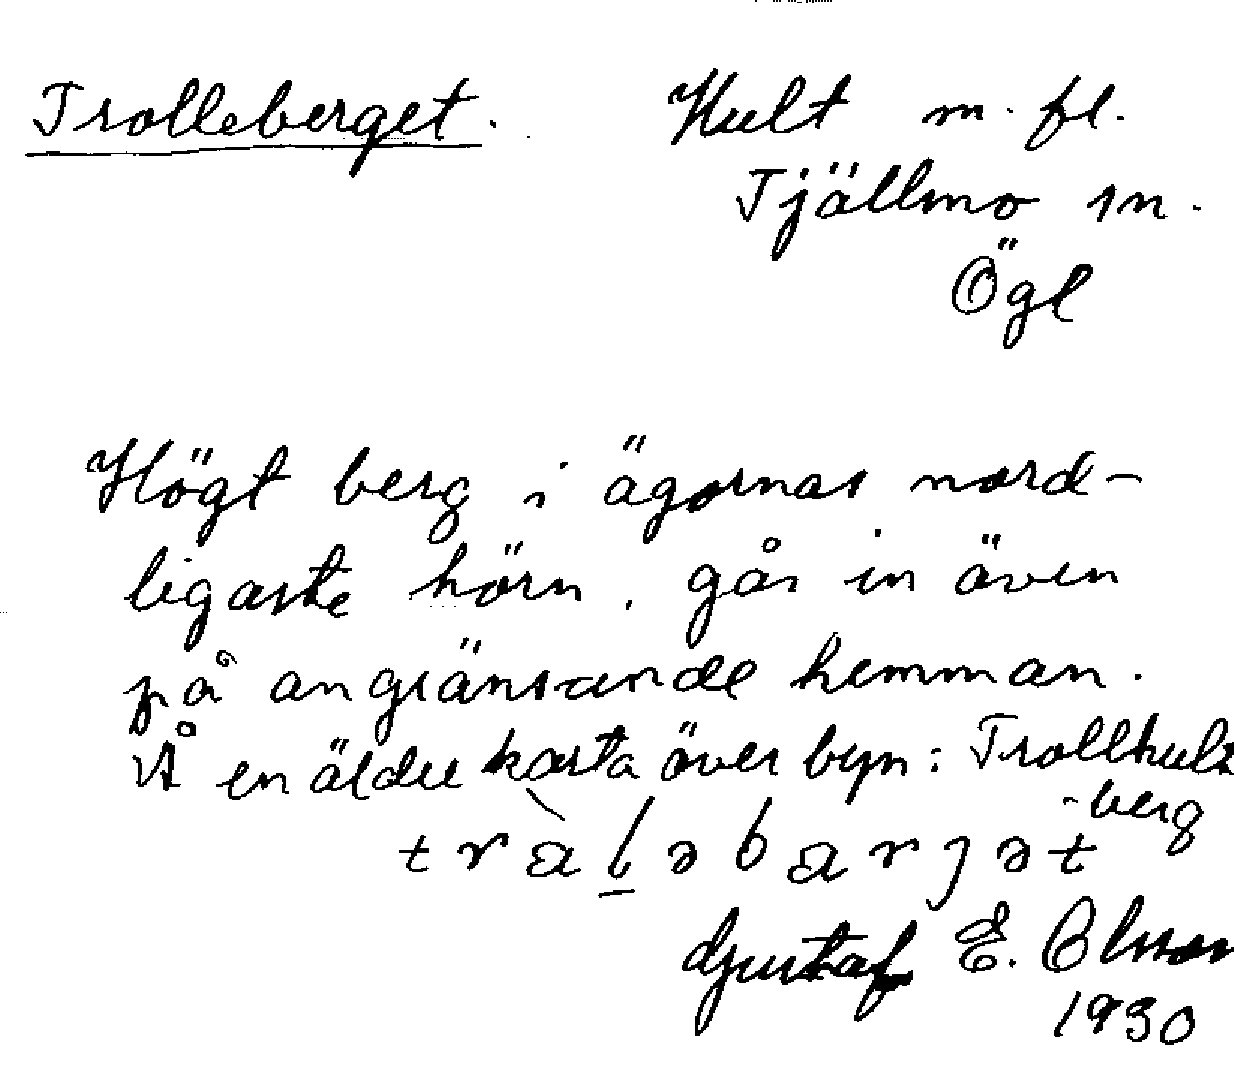 Trolleberget. Hult m. fl.
Tjällmo sn.
Ögl
Högt berg i ägornas nord-
ligaste hörn, går in även
på angränsande hemman.
Å en äldre karta över byn: Trollhult
-berg
Gustaf E. Olsson
1930